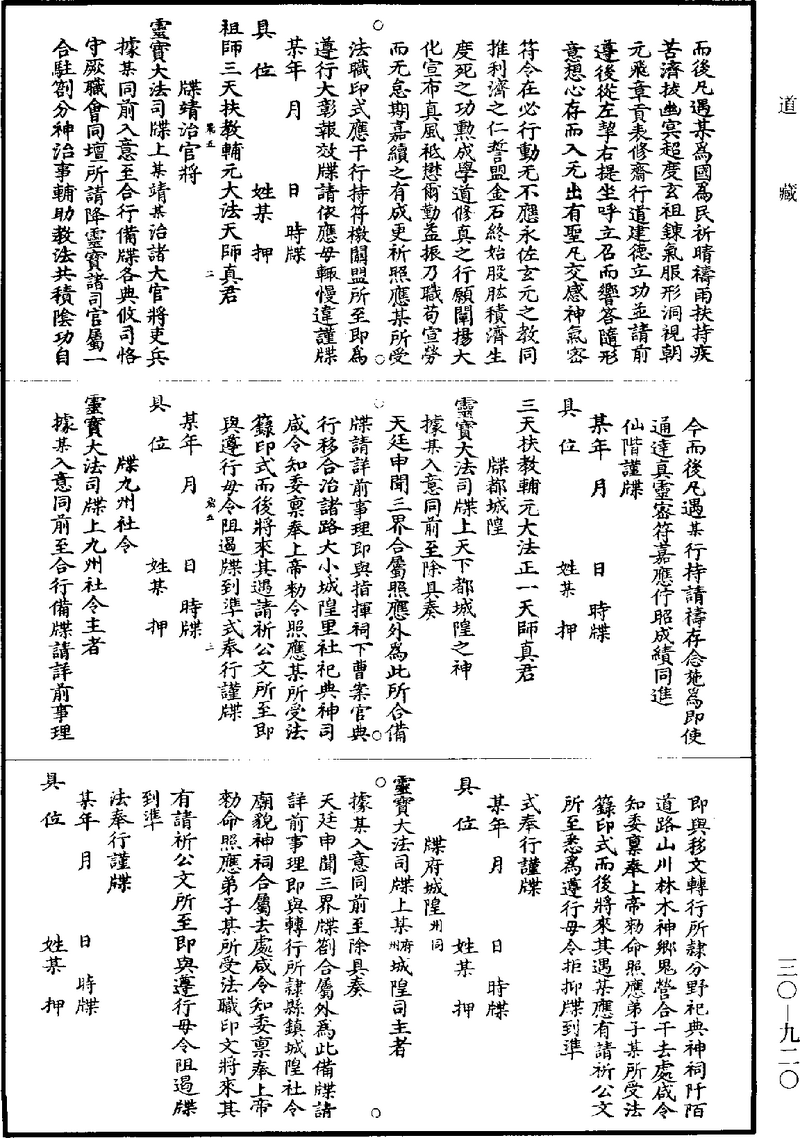 道藏
而後凡遇某爲國爲民祈晴禱雨扶持疾
苦濟拔幽冥超度玄祖鍊氣服形洞視朝
元飛章貢表修齋行道建德立功並請前
遵後從左挈右提坐呼立召而響答隨形
意想心存而入无出有聖凡交感神氣密
符令在必行動无不應永佐玄元之教同
推利濟之仁誓盟金石終始股肱積濟生
度死之功勲成學道修真之行願闡揚大
化宣布真風袛懋爾勤益振乃職苟宣勞
而无怠期嘉績之有成更祈照應某所受
法職印式應干行持符檄關盟所至即爲
遵行大彰報效牒請依應毋輒慢違謹牒
某年 月 日 時牒
具 位 姓某 押
祖師三天扶教輔元大法天師真君
牒靖治官將
靈寶大法司牒上某靖某治諸大官將吏兵
據某同前入意至合行備牒各典攸司恪
守厥職會同壇所請降靈寶諸司官屬一
合駐劄分神治事輔助教法共積陰功自
今而後凡遇某行持請禱存念施爲即使
通達真靈密符嘉應佇昭成績同進
仙階謹牒
某年 月 日 時牒
具 位 姓某 押
三天扶教輔元大法正一天師真君
牒都城隍
靈寶大法司牒上天下都城隍之神
據某入意同前至除具奏
天廷申聞三界合屬照應外爲此所合備
牒請詳前事理即與指揮祠下曹案官典
行移合治諸路大小城隍里社祀典神司
咸令知委禀奉上帝勑令照應某所受法
籙印式而後將來其遇請祈公文所至即
與遵行毋令阻遏牒到準式奉行謹牒
某年 月 日 時牒
具 位 姓某 押
牒九州社令
靈寶大法司牒上九州社令主者
據某入意同前至合行備牒請詳前事理
即與移文轉行所隸分野祀典神祠阡陌
道路山川林木神鄉鬼營合干去處咸令
知委禀奉上帝勑命照應弟子某所受法
籙印式而後將來其遇某應有請祈公文
所至悉爲遵行毋令拒抑牒到準
式奉行謹牒
某年 月 日 時牒
具 位 姓某 押
牒府城隍州同
靈寶大法司牒上某府州城隍司主者
據某入意同前至除具奏
天廷申聞三界牒劄合屬外爲此備牒請
詳前事理即與轉行所隸縣鎮城隍社令
廟貌神祠合屬去處咸令知委禀奉上帝
勑命照應弟子某所受法職印文將來其
有請祈公文所至即與遵行毋令阻遏牒
到準
法奉行謹牒
某年 月 日 時牒
具 位 姓某 押
三〇—九二〇